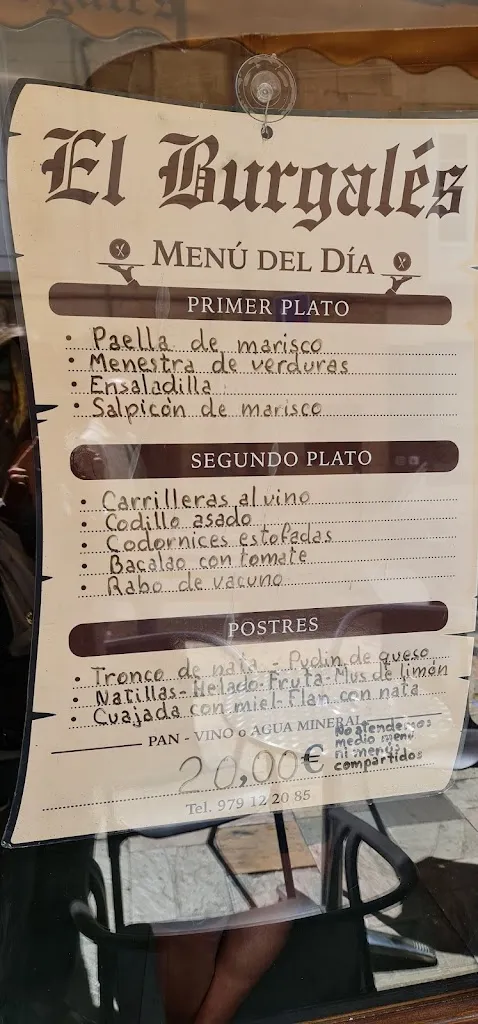 El Burgalés
MENÚ DEL DÍA
PRIMER PLATO
• Paella de marisco
• Menestra de verduras
• Ensaladilla
• Salpicón de marisco
SEGUNDO PLATO
• Carrilleras al vino
• Codillo asado
• Codornices estofadas
• Bacalao con tomate
• Rabo de vacuno
POSTRES
• Tronco de nata - Pudin de queso
• Natillas - Helado - Fruta - Mus de limón
• Cuajada con miel - Flan con nata
PAN - VINO o AGUA MINERAL
20,00€
No atendemos
medio menú
ni menús
compartidos
Tel. 979 12 20 85